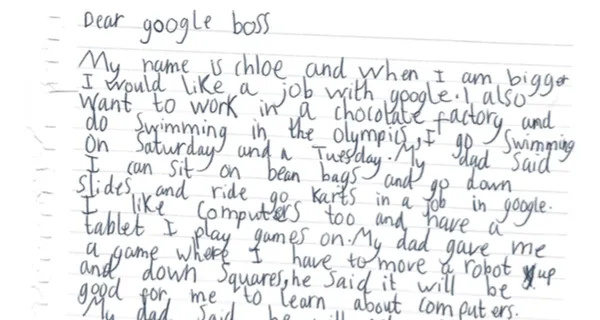 Dear google boss
My name is chloe and when I am bigger
I would like a job with google. I also
want to work in a chocolate factory and
do swimming in the olympics, I go swimming
on Saturday and a Tuesday. My dad said
I can sit on bean bags and go down
slides and ride go karts in a job in google.
I like computers too and have a
tablet I play games on. My dad gave me
a game where I have to move a robot up
and down squares, he said it will be
good for me to learn about computers.
My dad said he will